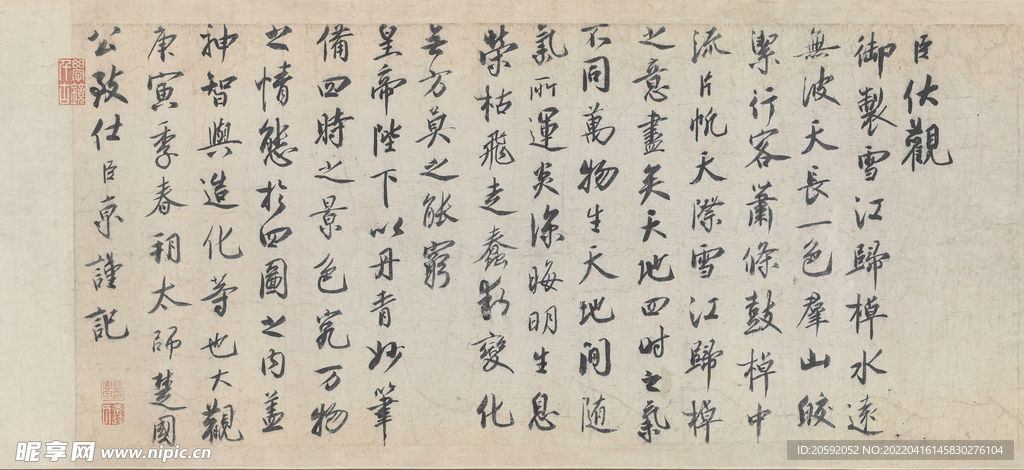 臣伏觀
御製雪江歸棹水遠
無波天長一色羣山皎
潔行客蕭條鼓棹中
流片帆天際雪江歸棹
之意盡矣天地四时之氣
不同萬物生天地間随
氣所運炎涼晦明生息
榮枯飛走蠢動變化
无方莫之能窮
皇帝陛下以丹青妙筆
備四時之景色究万物
之情態於四圖之内盖
神智與造化等也大觀
庚寅季春朔太師楚國
公致仕臣京謹記
昵享网 www.nipic.cn
ID:20592052 NO:20220416145830276104